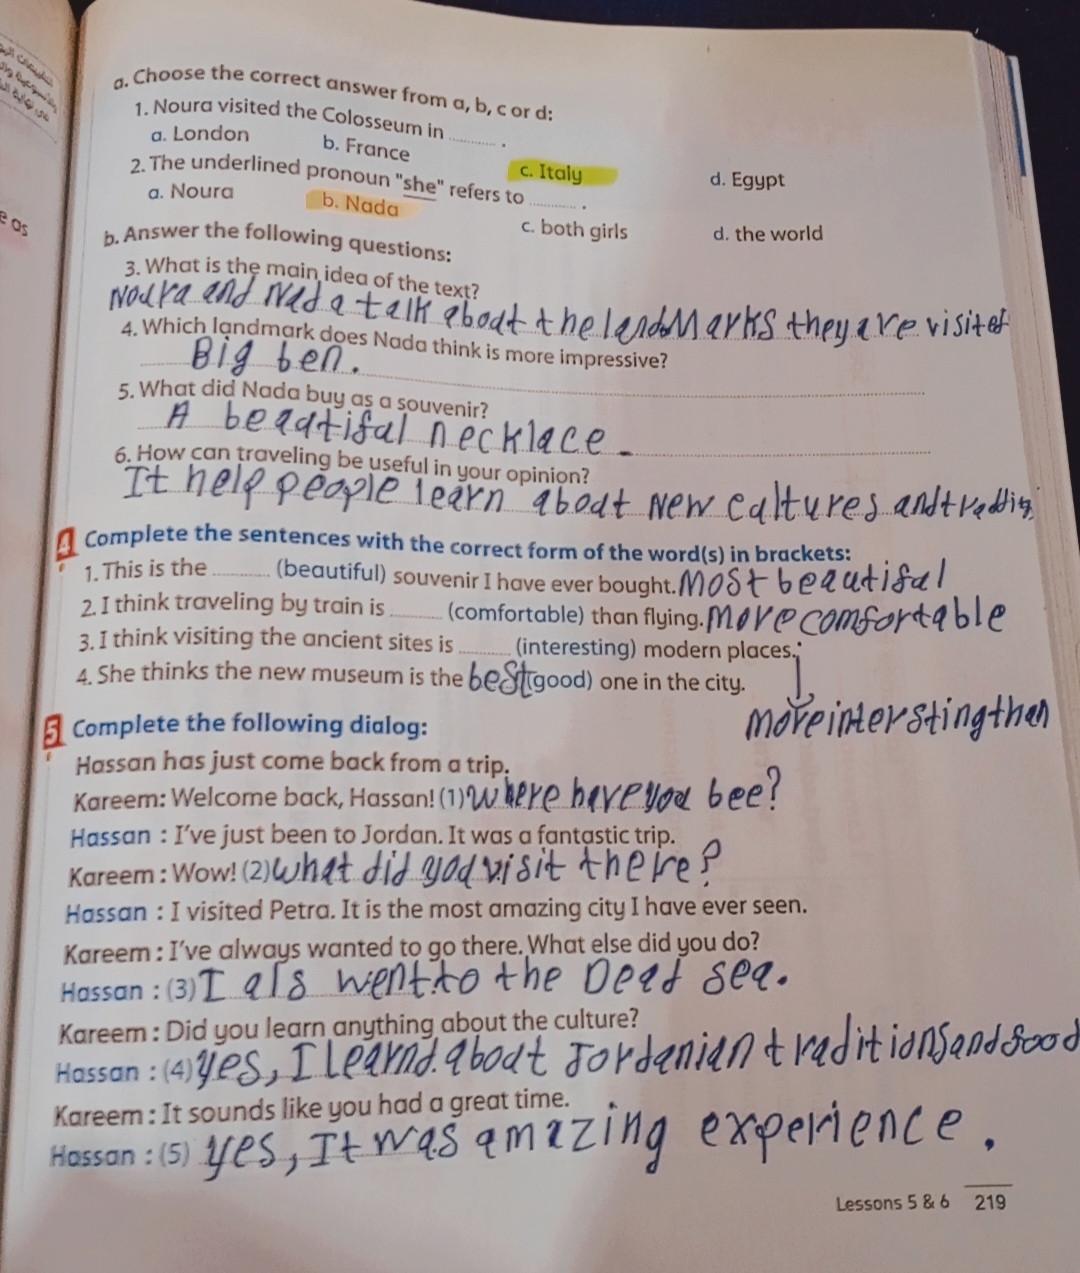 a. Choose the correct answer from a, b, c or d:
1. Noura visited the Colosseum in .......... .
a. London b. France c. Italy d. Egypt
2. The underlined pronoun "she" refers to .......... .
a. Noura b. Nada c. both girls d. the world
b. Answer the following questions:
3. What is the main idea of the text?
Noura and Nada talk about the landMarks they are visited
4. Which landmark does Nada think is more impressive?
Big ben.
5. What did Nada buy as a souvenir?
A beautiful necklace.
6. How can traveling be useful in your opinion?
It help people learn about New cultures and
4 Complete the sentences with the correct form of the word(s) in brackets:
1. This is the .......... (beautiful) souvenir I have ever bought. Most beautiful
2. I think traveling by train is .......... (comfortable) than flying. more comfortable
3. I think visiting the ancient sites is .......... (interesting) modern places.
4. She thinks the new museum is the best (good) one in the city.
more intersting than
5 Complete the following dialog:
Hassan has just come back from a trip.
Kareem: Welcome back, Hassan! (1) Where have you bee?
Hassan : I've just been to Jordan. It was a fantastic trip.
Kareem : Wow! (2) What did you visit there?
Hassan : I visited Petra. It is the most amazing city I have ever seen.
Kareem : I've always wanted to go there. What else did you do?
Hassan : (3) I als went to the Dead sea.
Kareem : Did you learn anything about the culture?
Hassan : (4) yes, I learnd about Jordanian traditions and food
Kareem : It sounds like you had a great time.
Hassan : (5) yes, It was amazing experience.
Lessons 5 & 6 219